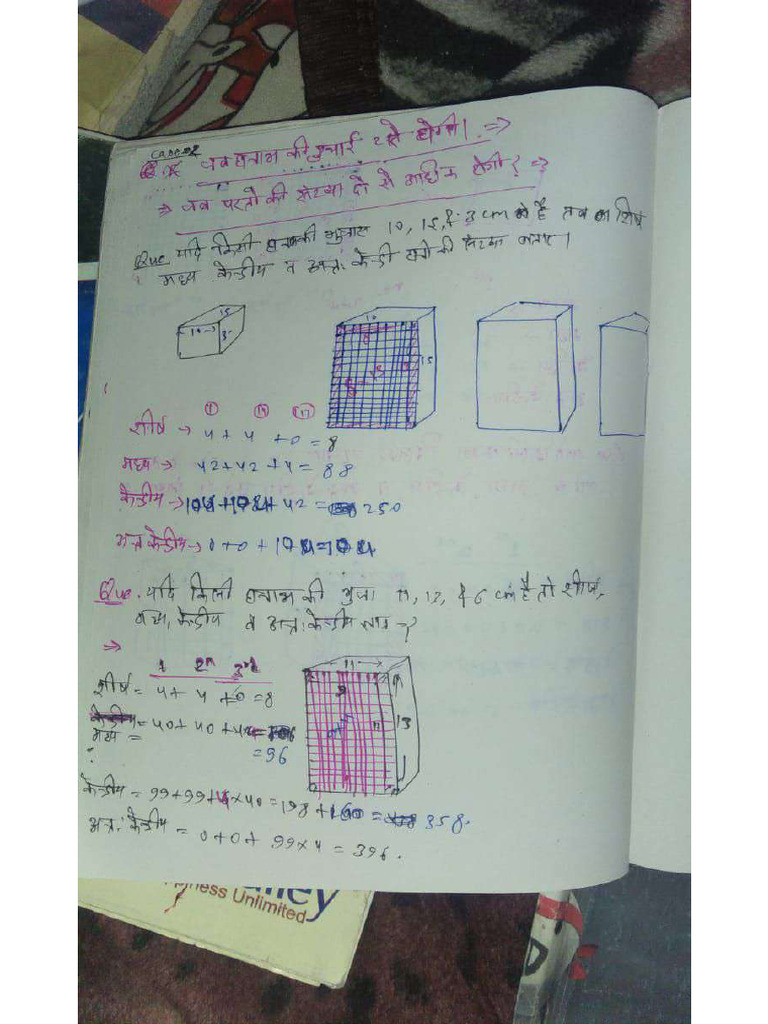 Case-2
जब घनाभ की ऊचाई 2 से होगी। ⇒
⇒ जब परतो की संख्या दो से अधिक होगी? ⇒
Que यदि किसी घनाभ की भुजाए 10, 15, & 3 cm है तब का शीर्ष
मध्य केन्द्रीय व अन्त: केन्द्री घनो की संख्या बताए।
15
10
3
10
15
शीर्ष → 4 + 4 + 0 = 8
मध्य → 42 + 42 + 4 = 88
केन्द्रीय → 104 + 104 + 42 = 250
अन्त केन्द्रीय → 0 + 0 + 104 = 104
Que. यदि किसी घनाभ की भुजा 11, 13, & 6 cm है तो शीर्ष,
मध्य, केन्द्रीय व अन्त: केन्द्रीय
⇒
1 2n 3rd
11
13
शीर्ष = 4 + 4 + 0 = 8
मध्य = 40 + 40 + 4
= 96
केन्द्रीय = 99 + 99 + 4 × 40 = 198 + 160 = 358.
अन्त: केन्द्रीय = 0 + 0 + 99 × 4 = 396.
ness Unlimited